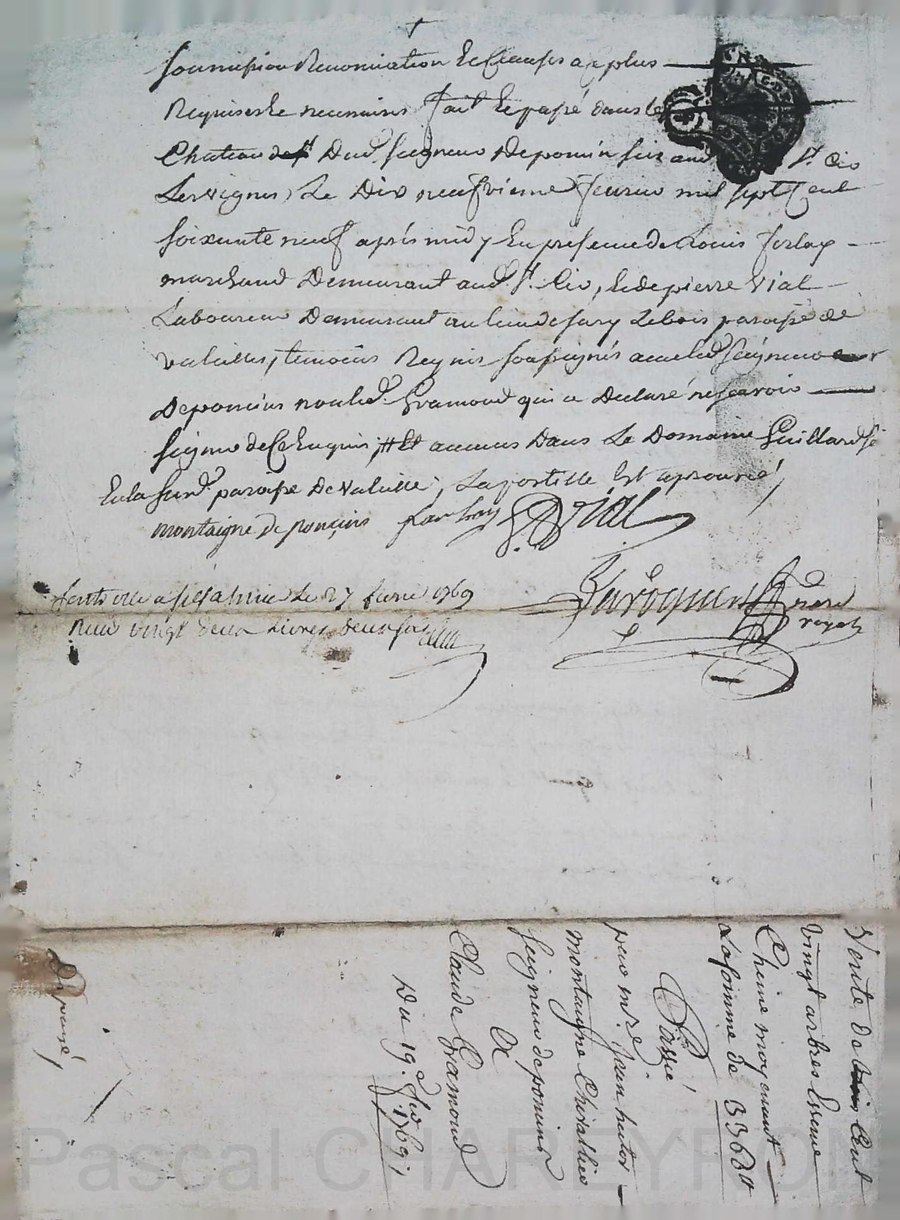 soumission Renonciation & Clauses a ce plus
Requises & necessaires fait & passé dans le
Chateau de Dud. Seigneur De poncin sis aud. St. Cire
Les vignes, Le Dix neufvieme feuvrier mil sept Cent
soixante neuf après midy En presence de Louis forlay
marchand Demeurant aud. St. Cire, & de pierre Vial
Laboureur Demeurant au lieu de Sury Le bois paroisse de
Valeille, temoins Requis soussignés avec led. Seigneur
De poncins non led. Gramond qui a Declaré ne scavoir
signer de ce Enquis, Et avenus Dans Le Domaine Guillard
En la Susd. paroisse De Valeille, La postille Est aprouvé,
montaigne de poncins farlay P. Vial
Controllé a le 27 fevrier 1769
Reçu vingt deux Livres deux sols
Nore royal
Vente de Cent
vingt arbres Essence
Chene moyenant
La somme de 3366 ll
Passée
par mre. jean hector
montaigne Chevallier
Seigneur de poncins
A
Claude Gramond
Du 19. fer. 1769
Deposé,
Pascal CHAREYRON